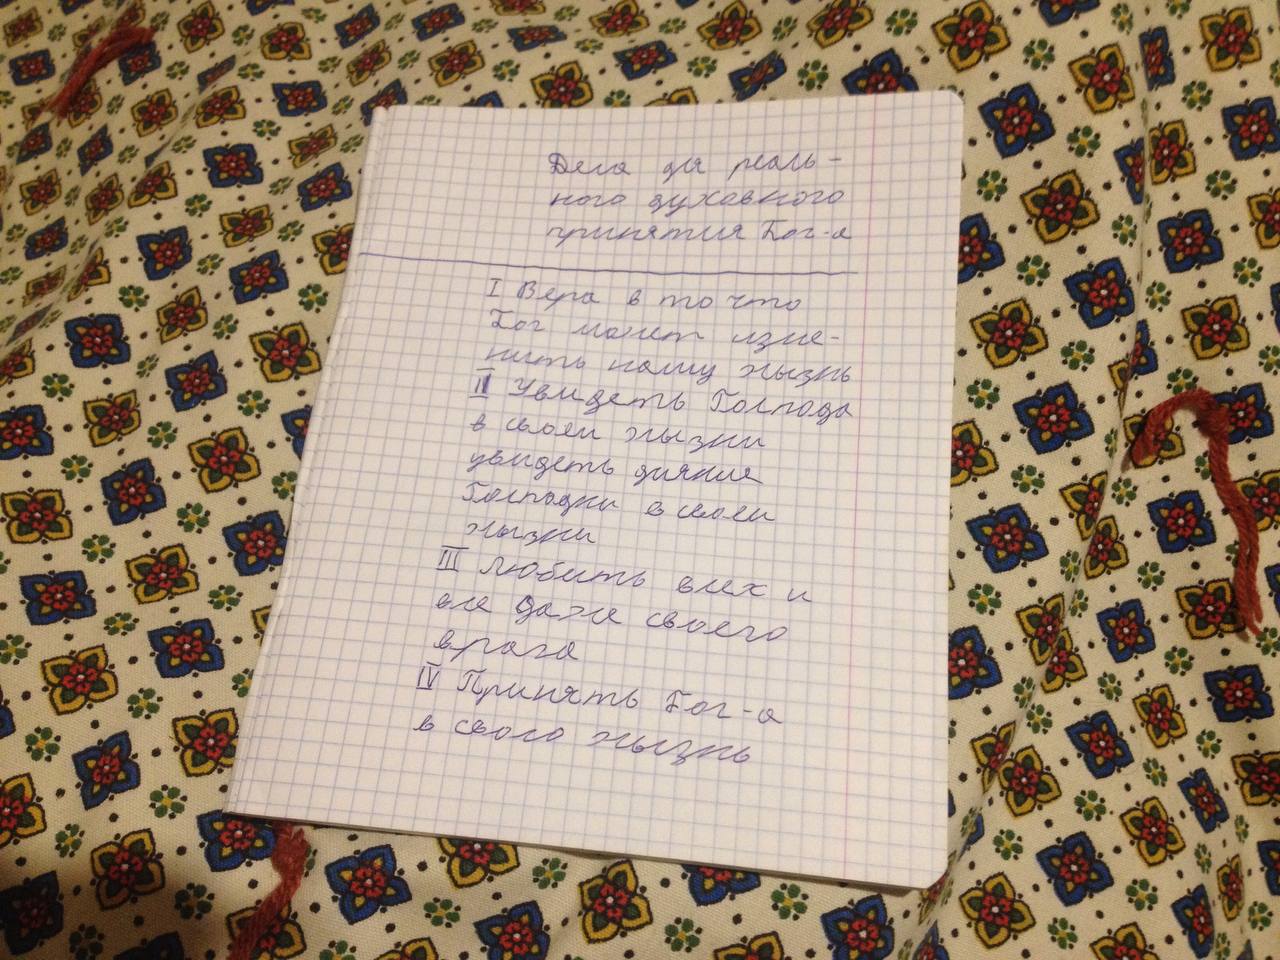 Дела для реаль-
ного духавного
принятия Бог-а
I Вера в то что
Бог может изме-
нить нашу жызнь
II Увидеть Господа
в своей жызни
увидеть дияние
Господни в своей
жызни
III Любить всех и
все даже своего
врага
IV Принять Бог-а
в свого жызнь